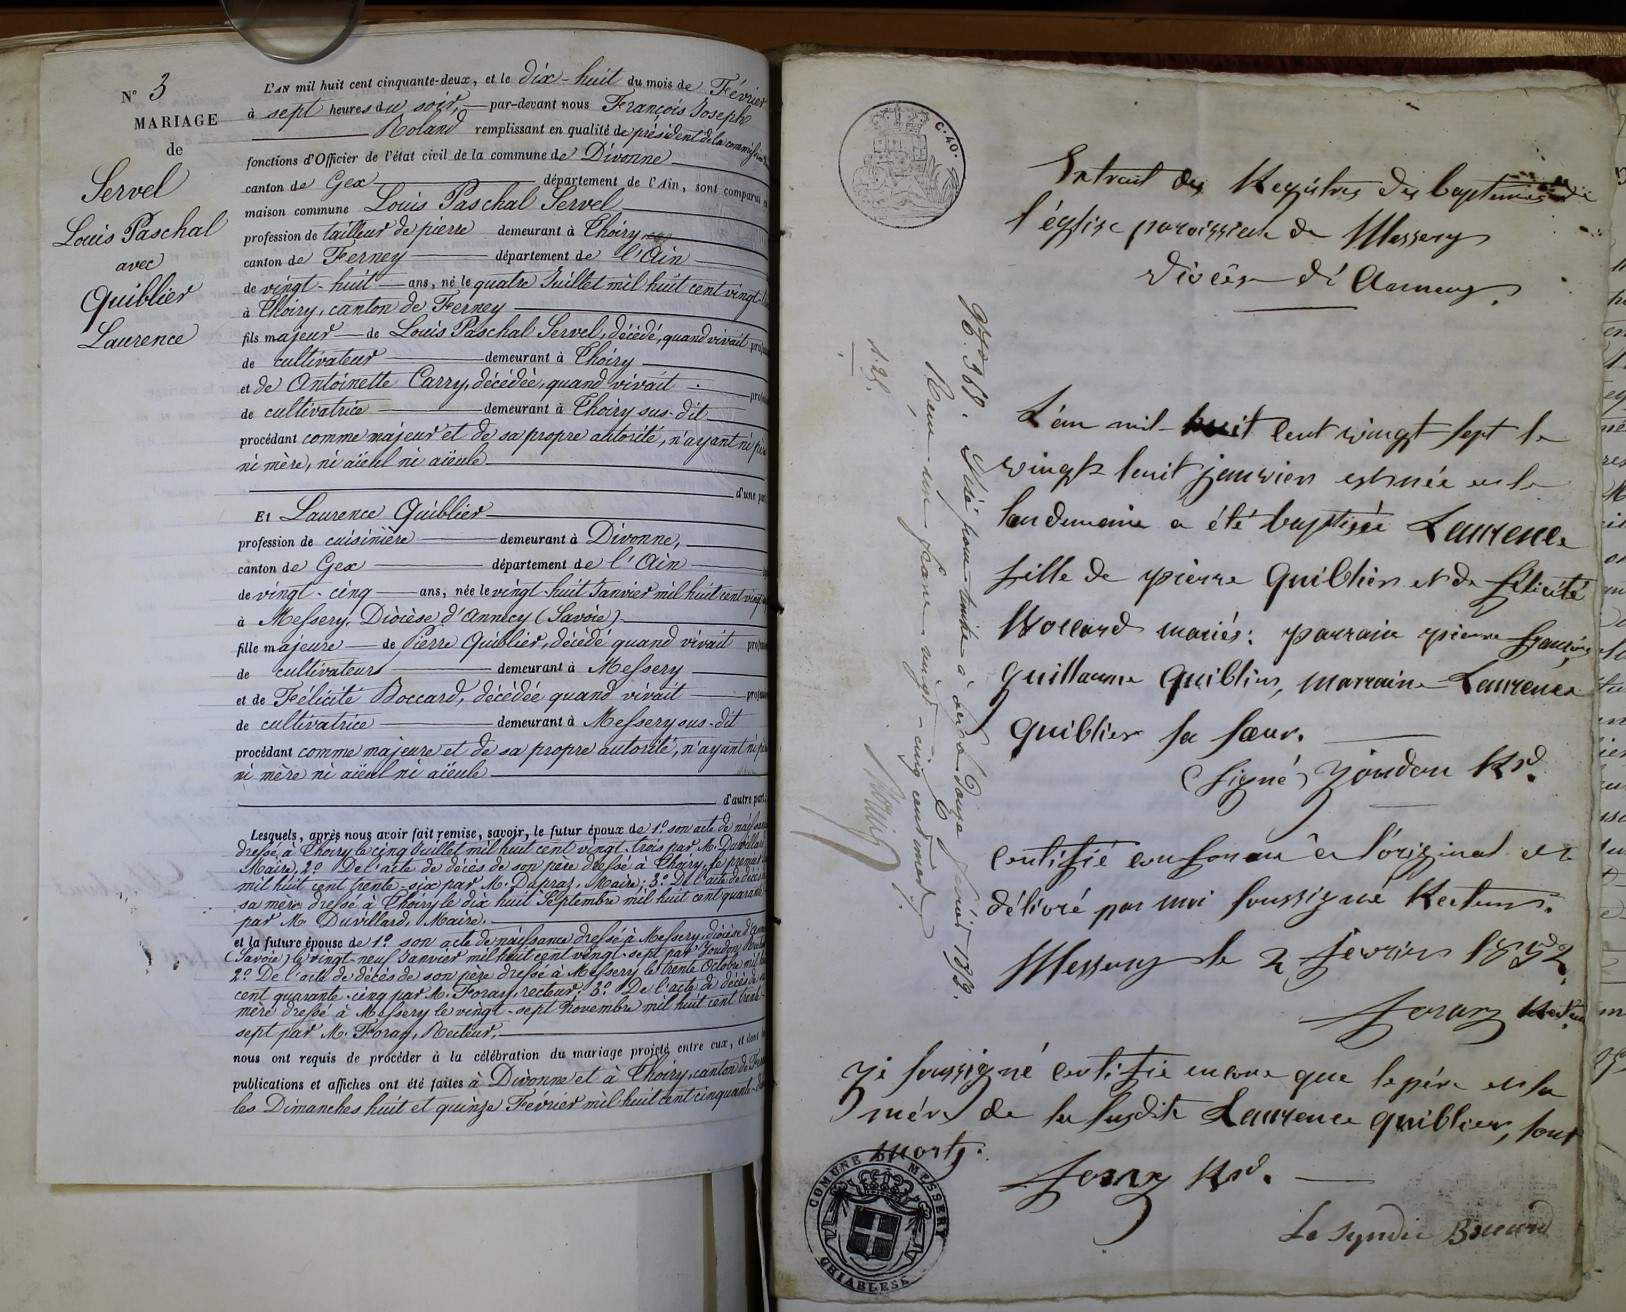 N° 3
MARIAGE
de
Servel
Louis Paschal
avec
Quiblier
Laurence
L'AN mil huit cent cinquante-deux, et le dix-huit du mois de Février
à sept heures du soir, par-devant nous François Joseph
Roland remplissant en qualité de président de la commission
fonctions d'Officier de l'état civil de la commune de Divonne
canton de Gex département de l'Ain, sont comparus en
maison commune Louis Paschal Servel
profession de tailleur de pierre demeurant à Thoiry
canton de Ferney département de l'Ain
de vingt-huit ans, né le quatre Juillet mil huit cent vingt-
à Thoiry, canton de Ferney
fils majeur de Louis Paschal Servel, décédé, quand vivait
de cultivateur demeurant à Thoiry
et de Antoinette Carry, décédée, quand vivait
de cultivatrice demeurant à Thoiry sus-dit
procédant comme majeur et de sa propre autorité, n'ayant ni père
ni mère, ni aïeul ni aïeule
d'une part;
Et Laurence Quiblier
profession de cuisinière demeurant à Divonne,
canton de Gex département de l'Ain
de vingt-cinq ans, née le vingt-huit Janvier mil huit cent vingt
à Messery, Diocèse d'Annecy (Savoie)
fille majeure de Pierre Quiblier, décédé quand vivait
de cultivateur demeurant à Messery
et de Félicité Boccard, décédée quand vivait
de cultivatrice demeurant à Messery sus-dit
procédant comme majeure et de sa propre autorité, n'ayant ni père
ni mère ni aïeul ni aïeule
d'autre part;
Lesquels, après nous avoir fait remise, savoir, le futur époux de 1° son acte de naissance
dressé à Thoiry le cinq Juillet mil huit cent vingt-trois par M. Duvillard
Maire, 2° De l'acte de décès de son père dressé à Thoiry, le premier
mil huit cent trente-six par M. Dapraz, Maire; 3° De l'acte de décès
sa mère dressé à Thoiry le dix huit Septembre mil huit cent quarante
par M. Duvillard, Maire.
et la future épouse de 1° son acte de naissance dressé à Messery, diocèse d'Annecy
(Savoie) le vingt-neuf Janvier mil huit cent vingt-sept par Joudon
2° De l'acte de décès de son père dressé à Messery le trente Octobre mil huit
cent quarante-cinq par M. Foray, recteur; 3° De l'acte de décès de
mère dressé à Messery le vingt-sept Novembre mil huit cent trente-
sept par M. Foray, Recteur,
nous ont requis de procéder à la célébration du mariage projeté entre eux, et dont
publications et affiches ont été faites à Divonne et à Thoiry, canton de
les Dimanches huit et quinze Février mil huit cent cinquante-
C. 40.
Extrait des Registres des baptemes de
l'église paroissiale de Messery
Diocèse d'Annecy.
L'an mil huit cent vingt sept le
vingt huit janvier est née et le
lendemaine a été baptisée Laurence
fille de pierre Quiblier et de félicité
Boccard mariés: parrain pierre françois
Guillaume Quiblier, marraine Laurence
Quiblier sa sœur.
(signé) Joudon Rd.
certifié conforme à l'original et
délivré par moi soussigné Recteur.
Messery le 2 février 1852.
Foray Recteur
Je soussigné certifie encore que le père et la
mère de la susdite Laurence Quiblier, sont
morts.
Foray Rd.
Le syndic Boccard
COMUNE DI MESSERY
CHIABLESE
N° 368. Visé pour timbre à Gex le Douze février 1852.
Reçu un franc vingt-cinq centimes.
1.25.